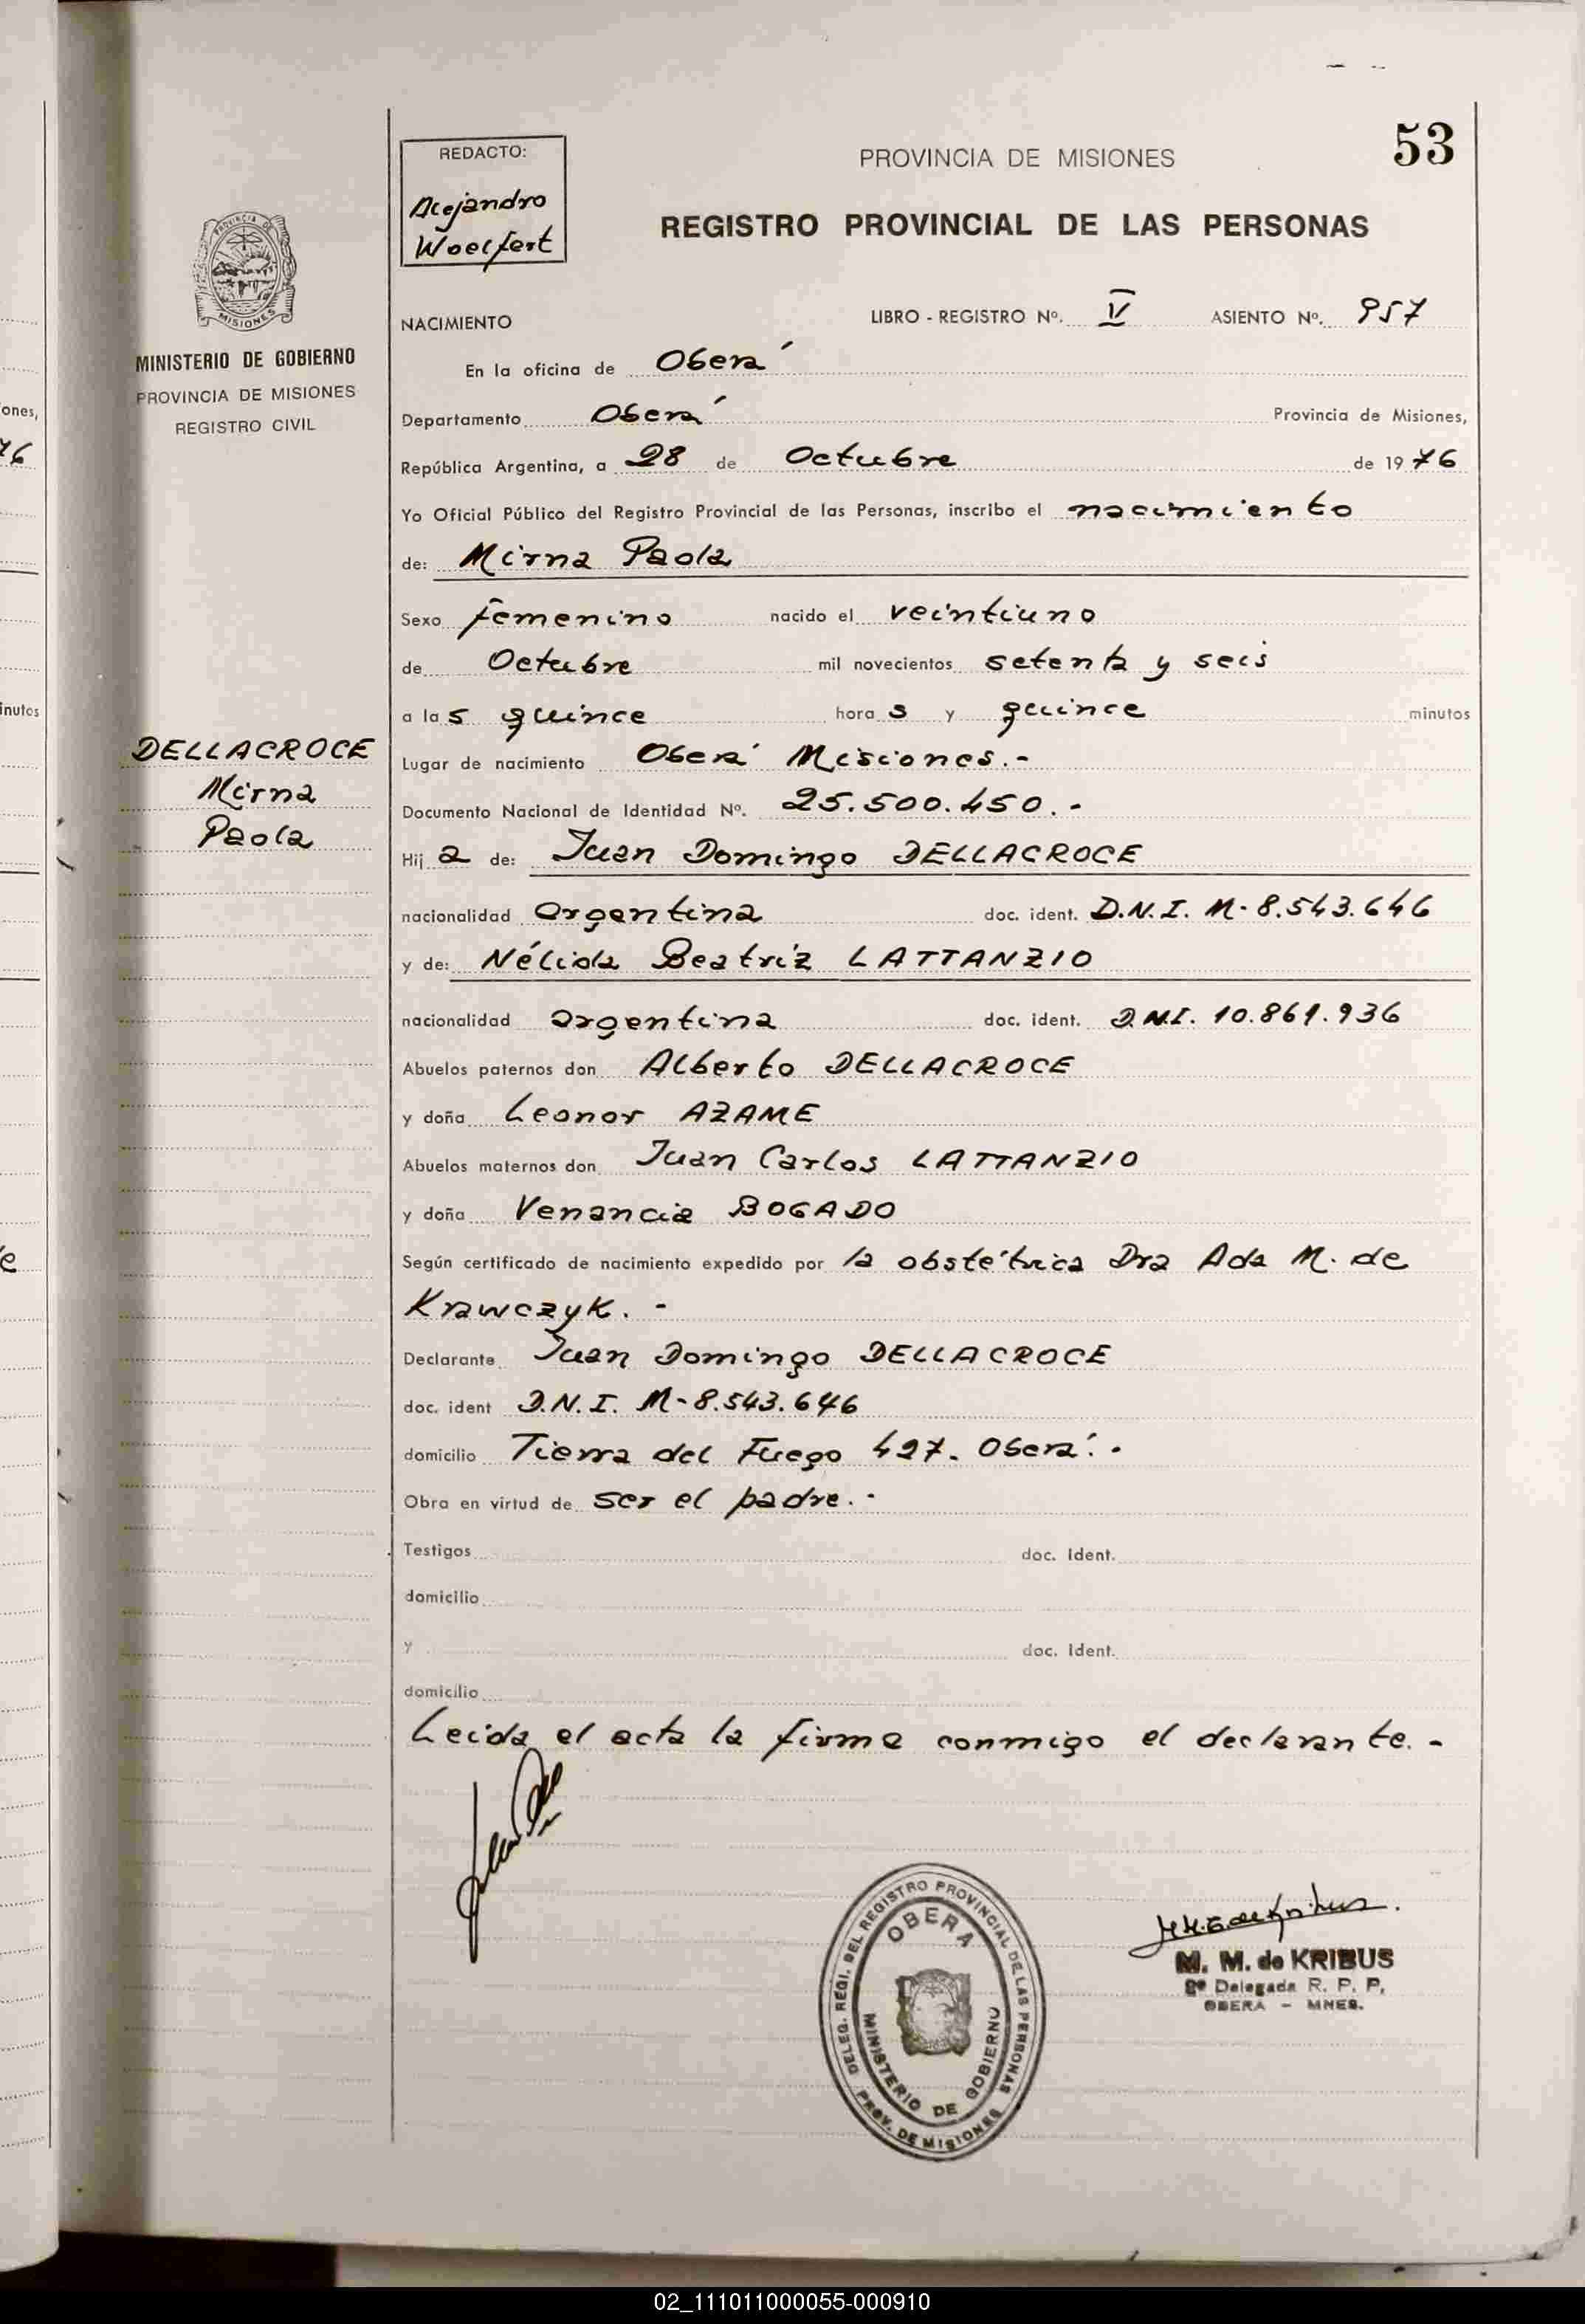 53
REDACTO:
Alejandro
Woelfert
PROVINCIA DE MISIONES
REGISTRO PROVINCIAL DE LAS PERSONAS
PROVINCIA DE
MISIONES
MINISTERIO DE GOBIERNO
PROVINCIA DE MISIONES
REGISTRO CIVIL
ones,
76
inutos
e
DELLACROCE
Mirna
Paola
NACIMIENTO LIBRO - REGISTRO Nº. V ASIENTO Nº. 957
En la oficina de Oberá
Departamento Oberá Provincia de Misiones,
República Argentina, a 28 de Octubre de 1976
Yo Oficial Público del Registro Provincial de las Personas, inscribo el nacimiento
de: Mirna Paola
Sexo femenino nacido el veintiuno
de Octubre mil novecientos setenta y seis
a las quince horas y quince minutos
Lugar de nacimiento Oberá Misiones.-
Documento Nacional de Identidad Nº. 25.500.450.-
Hija de: Juan Domingo DELLACROCE
nacionalidad Argentina doc. ident. D.N.I. M-8.543.646
y de: Nélida Beatriz LATTANZIO
nacionalidad argentina doc. ident. D.N.I. 10.861.936
Abuelos paternos don Alberto DELLACROCE
y doña Leonor AZAME
Abuelos maternos don Juan Carlos LATTANZIO
y doña Venancia BOGADO
Según certificado de nacimiento expedido por la obstétrica Dra Ada M. de
Krawczyk.-
Declarante Juan Domingo DELLACROCE
doc. ident D.N.I. M-8.543.646
domicilio Tierra del Fuego 427. Oberá.-
Obra en virtud de ser el padre.-
Testigos doc. ident.
domicilio
y doc. ident.
domicilio
Leida el acta la firma conmigo el declarante.-
DELEG. REGI. DEL REGISTRO PROVINCIAL DE LAS PERSONAS
PROV. DE MISIONES
OBERA
MINISTERIO DE GOBIERNO
M. M. de KRIBUS
2ª Delegada R. P. P.
OBERA - MNES.
02_111011000055-000910